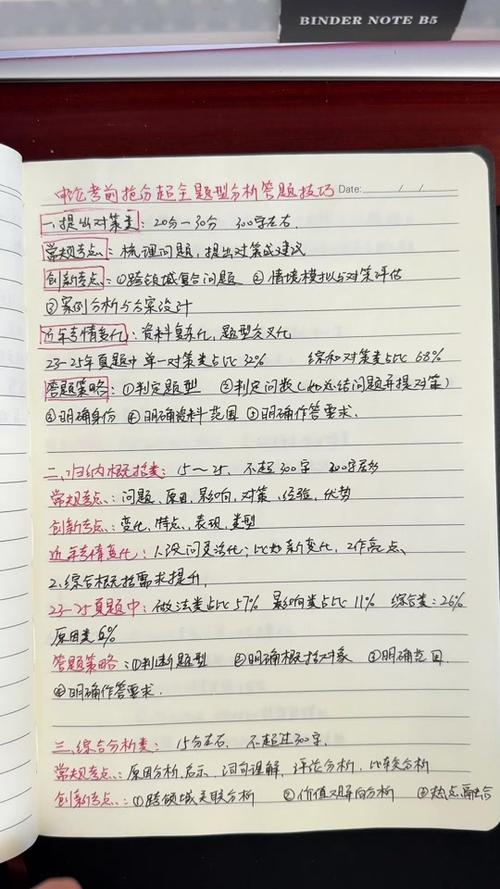 BINDER NOTE B5
申论考前抢分超全题型分析答题技巧 Date: / /
一、提出对策类: 20分-30分 300字左右.
常规考点: 梳理问题, 提出对策或建议
创新考点: ①跨领域复合问题 ②情境模拟与对策评估
③案例分析与方案设计
近年考情变化: 资料复杂化, 题型交叉化
23-25年真题中 单一对策类占比32% 综和对策类占比68%
答题策略: ①判定题型 ②判定问数(如总结问题并提对策)
③明确身份 ④明确资料范围 ⑤明确作答要求.
二、归纳概括类: 15~25. 不超300字 200字居多
常规考点: 问题、原因、影响、对策、经验、优势
创新考点: 变化、特点、表现、类型
近年考情变化: 1.设问灵活化; 比如新变化, 工作亮点、
2.综合概括需求提升.
23-25真题中: 做法类占比57% 影响类占比11% 综合类: 26%
原因类6%
答题策略: ①判断题型 ②明确概括对象 ③明确范围
④明确作答要求.
三、综合分析类: 15分左右. 不超过300字.
常规考点: 原因分析、启示、词句理解、评论分析、比较分析
创新考点: ①跨领域关联分析 ②价值观导向分析 ③热点融合